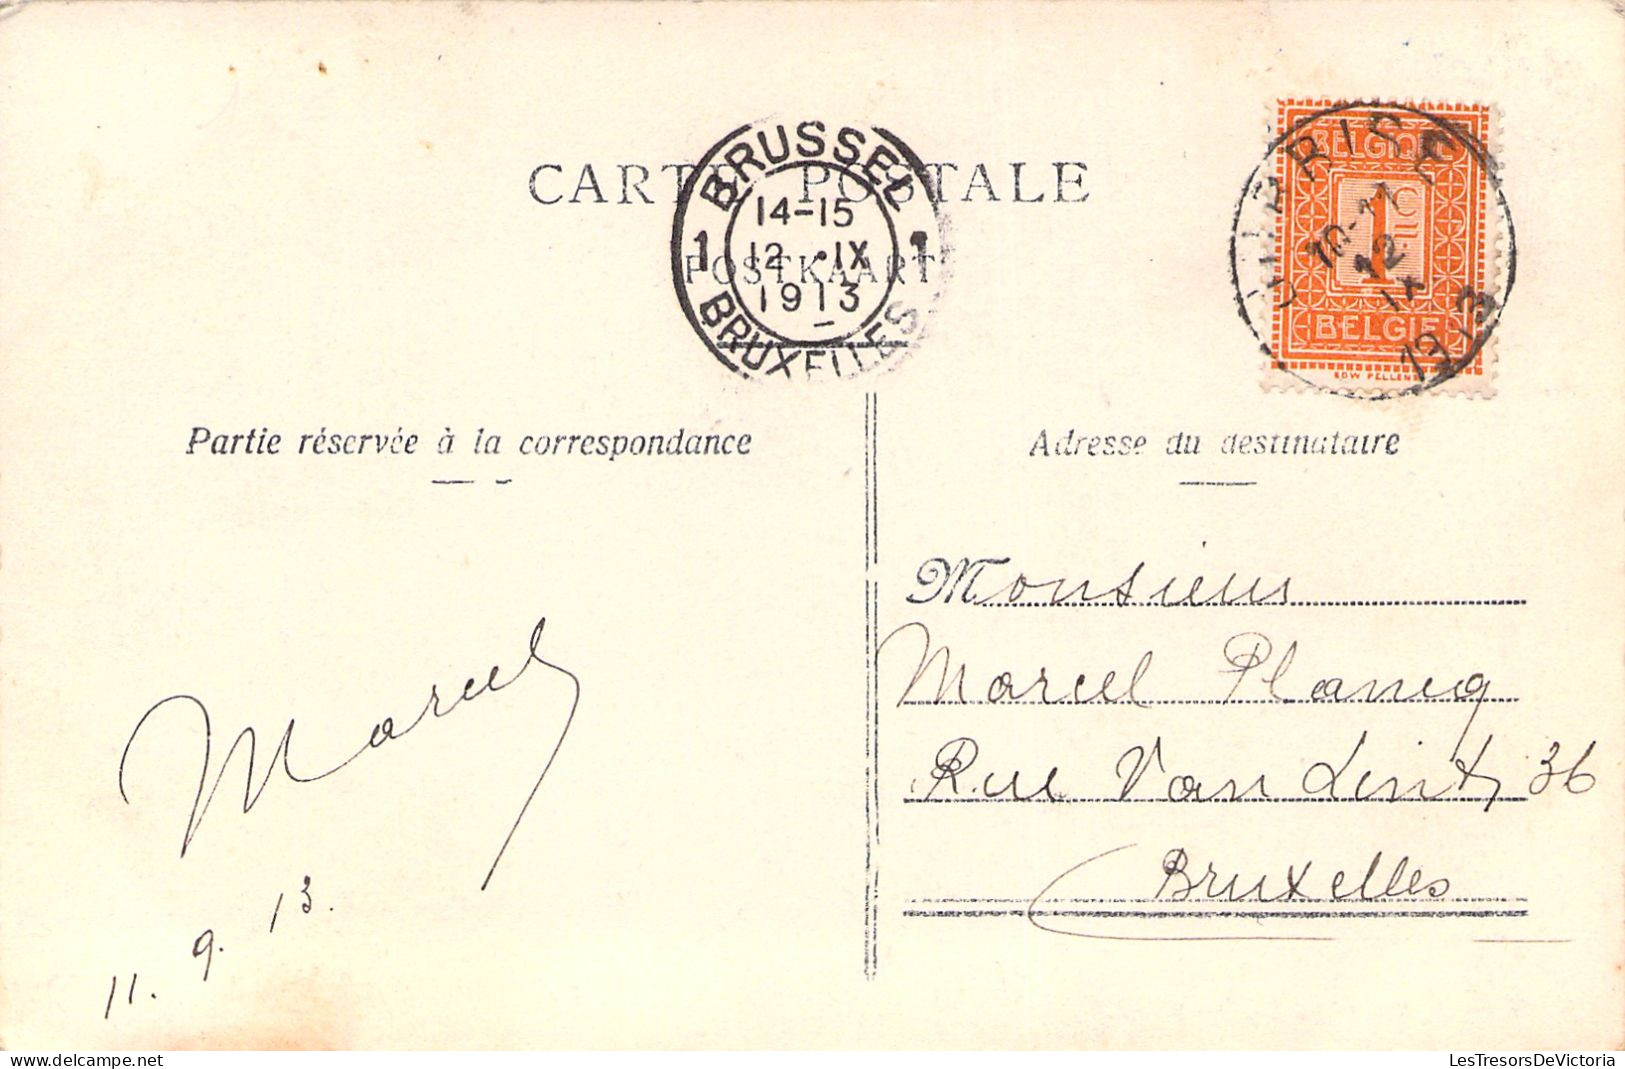 CARTE POSTALE
POSTKAART
BRUSSEL
14-15
1 12 .IX 1
1913
BRUXELLES
BELGIQUE
1
BELGIE
10-11
12
IX
1913
Partie réservée à la correspondance
Adresse du destinataire
Marcel
11. 9. 13.
Monsieur
Marcel Plancq
Rue Van Lint, 36
Bruxelles
LesTresorsDeVictoria